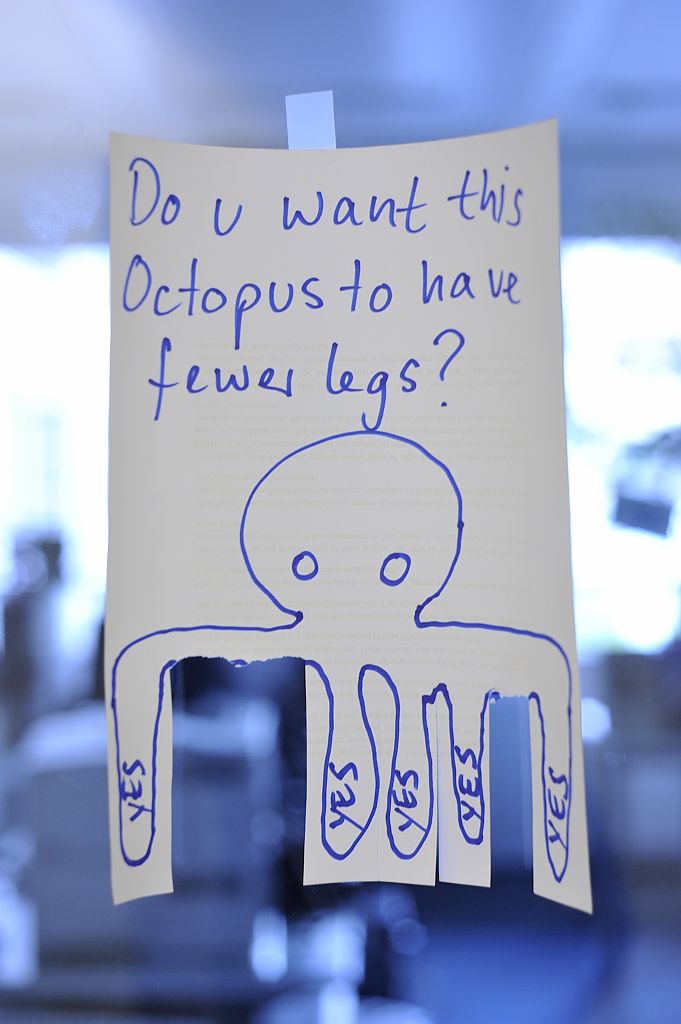 Do u want this
Octopus to have
fewer legs?
YES YES YES YES YES